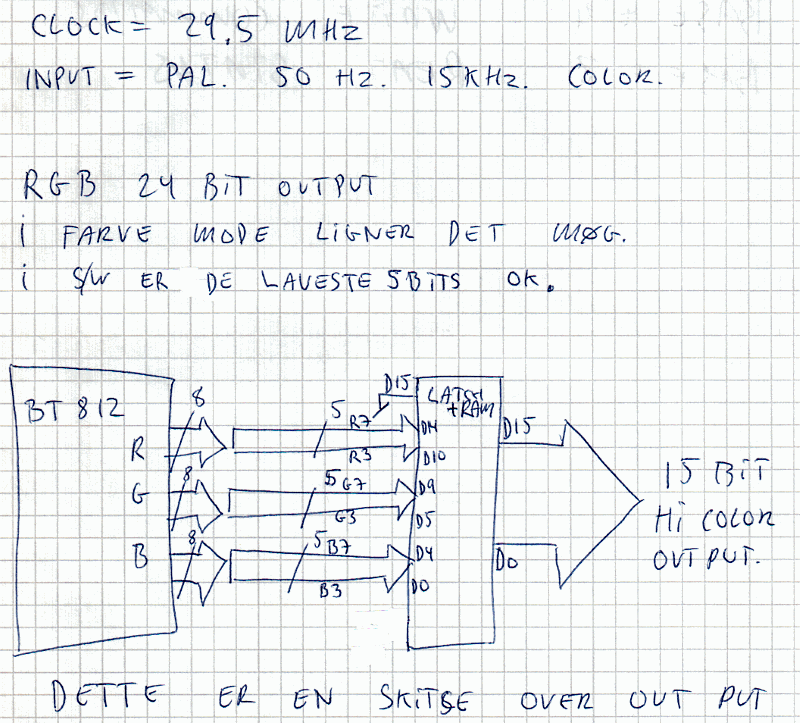 CLOCK = 29,5 MHZ
INPUT = PAL. 50 HZ. 15KHZ. COLOR.
RGB 24 BIT OUTPUT
i FARVE MODE LIGNER DET MØG.
i S/W ER DE LAVESTE 5BITS OK.
BT 812
8
5
R7
D15
LATCH
+RAM
D14
D15
R
R3
D10
15 BIT
8
5
G7
D9
G
G3
D5
Hi COLOR
8
5
B7
D4
D0
OUTPUT.
B
B3
D0
DETTE ER EN SKITSE OVER OUT PUT